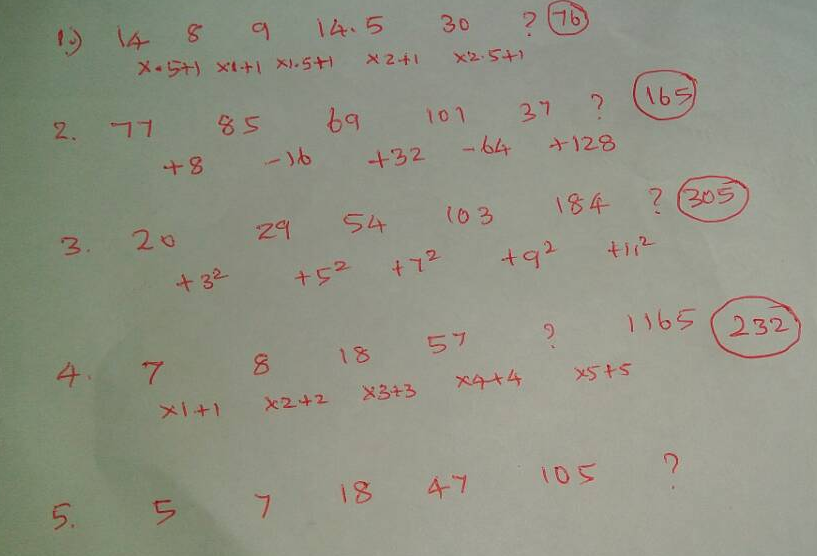 1.) 14 8 9 14.5 30 ? 76
x.5+1 x1+1 x1.5+1 x2+1 x2.5+1
2. 77 85 69 101 37 ? 165
+8 -16 +32 -64 +128
3. 20 29 54 103 184 ? 305
+3² +5² +7² +9² +11²
4. 7 8 18 57 ? 1165 232
x1+1 x2+2 x3+3 x4+4 x5+5
5. 5 7 18 47 105 ?